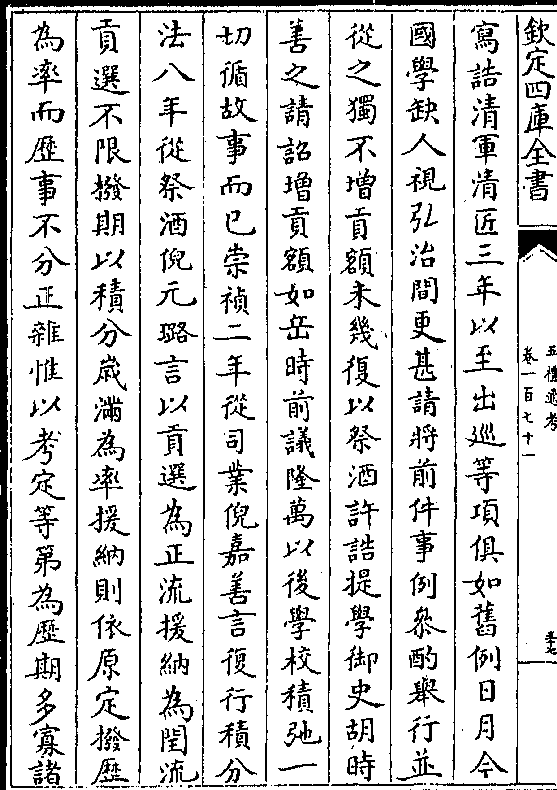 欽定四庫全書
五禮通考
卷一百七十一
寫誥清軍清匠三年以至出巡等項俱如舊例日月今
國學缺人視弘治間更甚請將前件事例叅酌舉行並
從之獨不增貢額未幾復以祭酒許誥提學御史胡時
善之請詔增貢額如岳時前議隆萬以後學校積弛一
切循故事而已崇禎二年從司業倪嘉善言復行積分
法八年從祭酒倪元璐言以貢選為正流援納為閏流
貢選不限撥期以積分歲滿為率援納則依原定撥歷
為率而歷事不分正雜惟以考定等第為歷期多寡諸